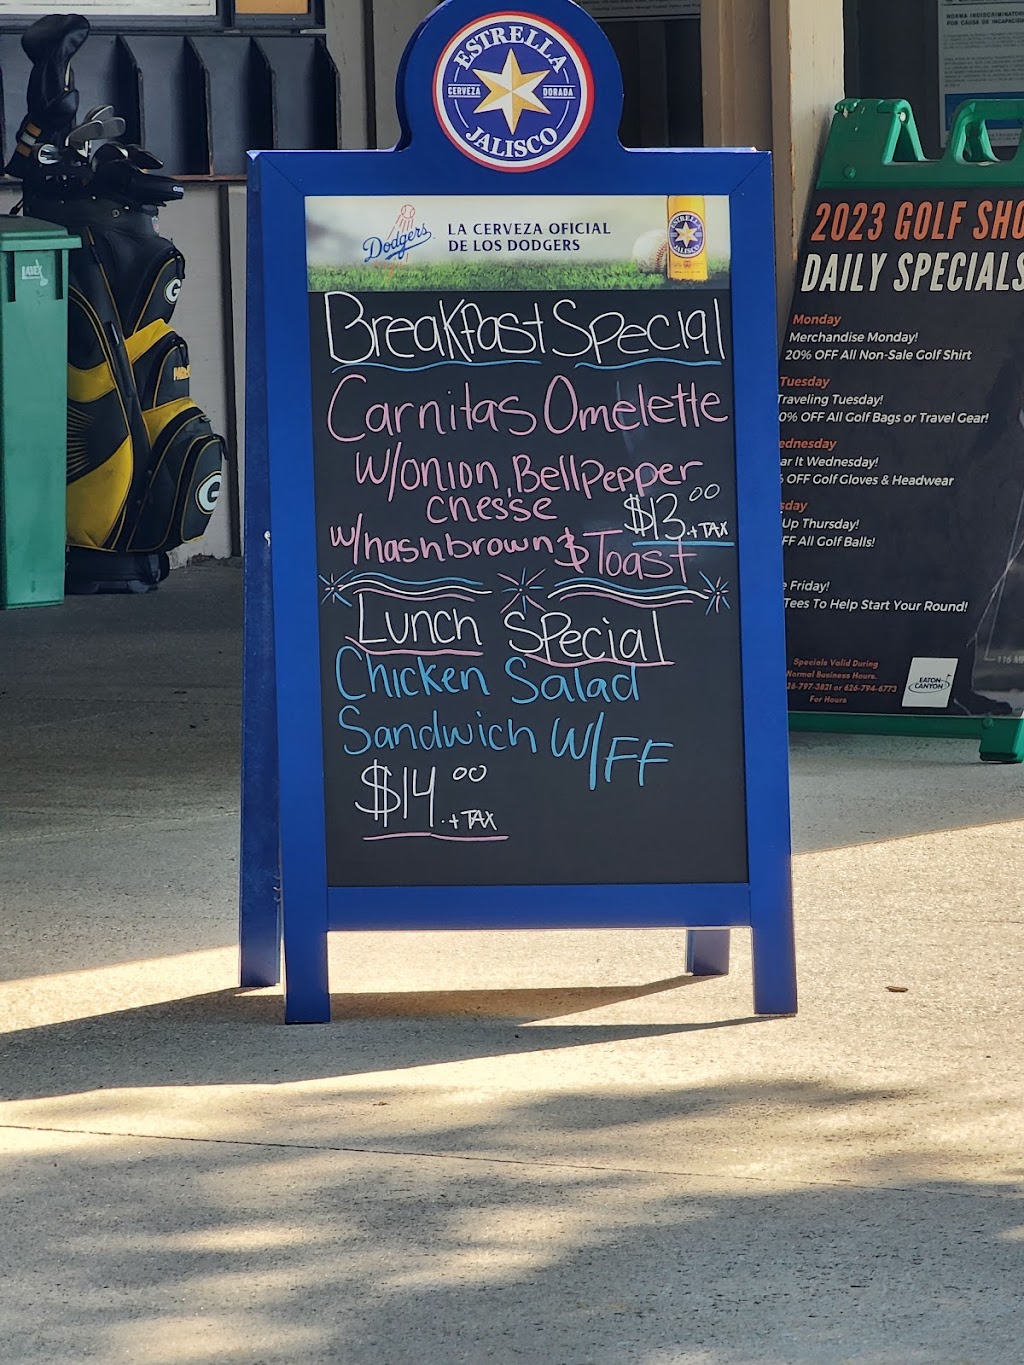 ESTRELLA
CERVEZA DORADA
JALISCO
Dodgers
LA CERVEZA OFICIAL
DE LOS DODGERS
ESTRELLA
JALISCO
Breakfast Special
Carnitas Omelette
W/onion, Bell Pepper
cheese
$13.00 + TAX
w/hashbrown & Toast
Lunch Special
Chicken Salad
Sandwich W/FF
$14.00 + TAX
NORMA INDISCRIMINATORI
POR CAUSA DE INCAPACIDA
2023 GOLF SHO
DAILY SPECIALS
Monday
Merchandise Monday!
20% OFF All Non-Sale Golf Shirt
Tuesday
Traveling Tuesday!
0% OFF All Golf Bags or Travel Gear!
ednesday
ar It Wednesday!
% OFF Golf Gloves & Headwear
sday
Up Thursday!
FF All Golf Balls!
e Friday!
Tees To Help Start Your Round!
Specials Valid During
Normal Business Hours.
26-797-3821 or 626-794-6773
For Hours
EATON
CANYON
G
G